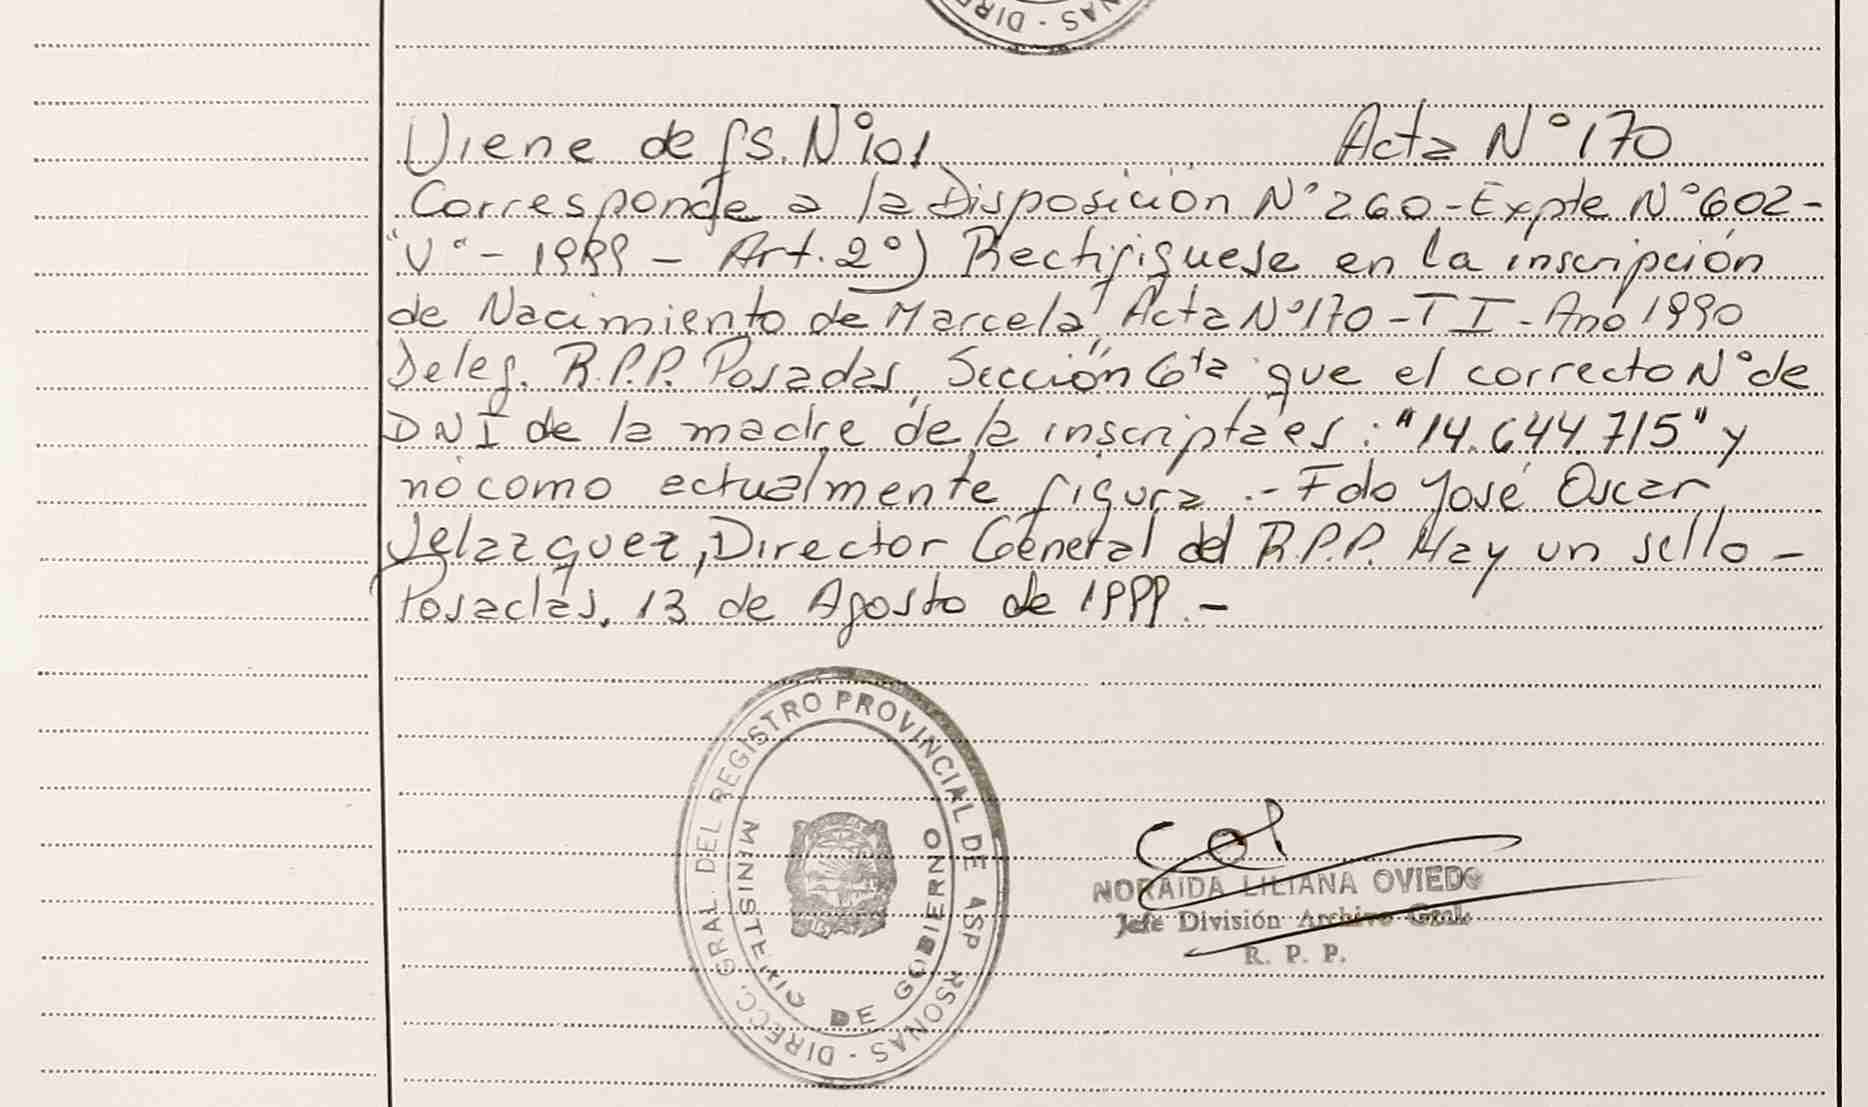 NAS - DIREC
Viene de fs. Nº 101 Acta Nº 170
Corresponde a la Disposición Nº 260 - Expte Nº 602 -
"V" - 1999 - Art. 2º) Rectifíquese en la inscripción
de Nacimiento de Marcela, Acta Nº 170 - T I - Año 1990
Deleg. R.P.P. Posadas, Sección 6ta que el correcto Nº de
DNI de la madre de la inscripta es: "14.644.715" y
no como actualmente figura.- Fdo José Oscar
Velazquez, Director General del R.P.P. Hay un sello -
Posadas, 13 de Agosto de 1999.-
DIRECC. GRAL. DEL REGISTRO PROVINCIAL DE ASP RSONAS -
MINISTERIO DE GOBIERNO
NORAIDA LILIANA OVIEDO
Jefe División Archivo Gral.
R. P. P.